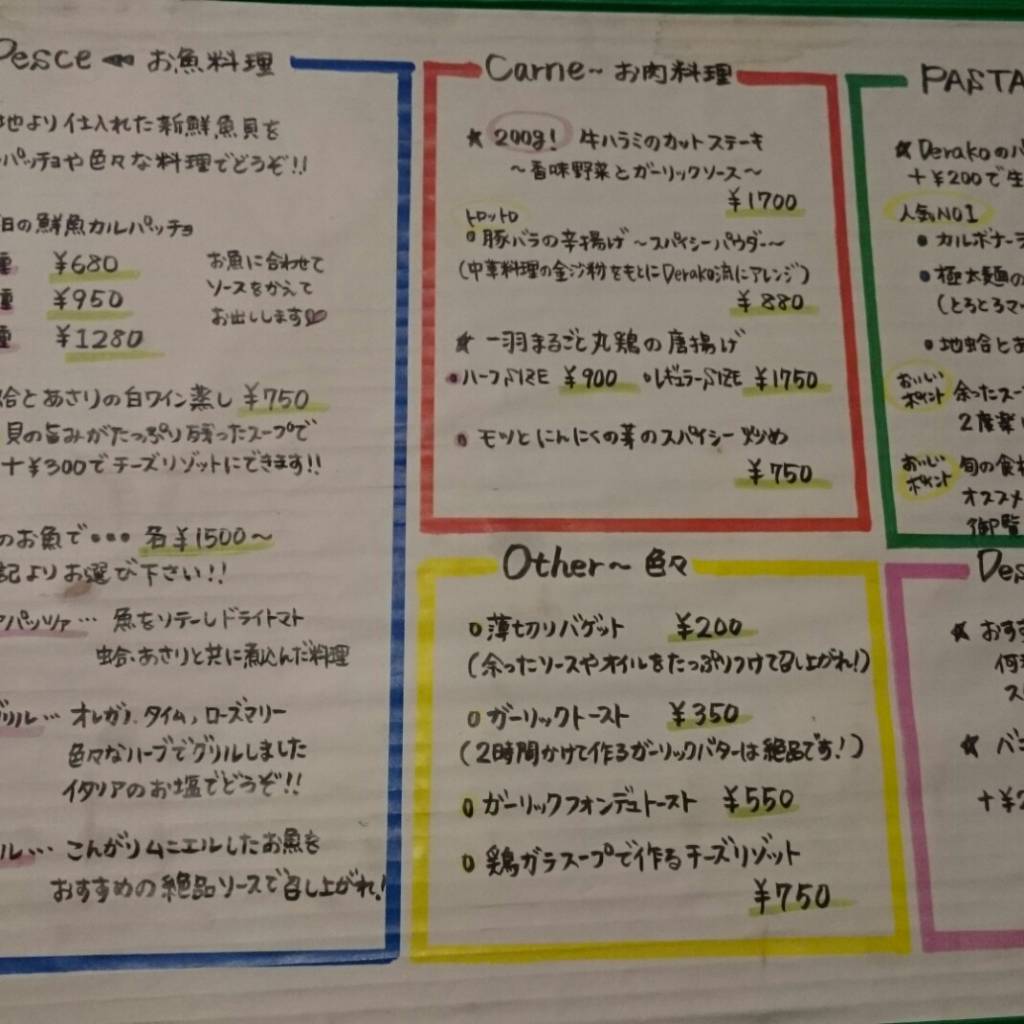 Pesce お魚料理
より仕入れた新鮮魚貝を
パッチョや色々な料理でどうぞ!!
の鮮魚カルパッチョ
種 ¥680
種 ¥950
種 ¥1280
お魚に合わせて
ソースをかえて
お出しします♡
蛤とあさりの白ワイン蒸し ¥750
貝の旨みがたっぷり残ったスープで
+¥300でチーズリゾットにできます!!
のお魚で••• 各¥1500〜
記よりお選び下さい!!
アパッツァ… 魚をソテーしドライトマト
蛤、あさりと共に煮込んだ料理
グリル… オレガノ、タイム、ローズマリー
色々なハーブでグリルしました
イタリアのお塩でどうぞ!!
ル… こんがりムニエルしたお魚を
おすすめの絶品ソースで召し上がれ!
Carne〜お肉料理
★ 200g! 牛ハラミのカットステーキ
〜香味野菜とガーリックソース〜
¥1700
トロットロ
○豚バラの辛揚げ〜スパイシーパウダー〜
(中華料理の金沙粉をもとにDerako流にアレンジ)
¥880
★ 一羽まるごと丸鶏の唐揚げ
•ハーフSIZE ¥900 •レギュラーSIZE ¥1750
○ モツとにんにくの芽のスパイシー炒め
¥750
Other〜色々
○薄切りバゲット ¥200
(余ったソースやオイルをたっぷりつけて召し上がれ!)
○ガーリックトースト ¥350
(2時間かけて作るガーリックバターは絶品です!)
○ガーリックフォンデュトースト ¥550
○ 鶏ガラスープで作るチーズリゾット
¥750
PASTA
★ Derakoのパ
+¥200で生
人気NO1
• カルボナーラ
• 極太麺の
(とろとろマッ
• 地蛤とあ
おいしいポイント 余ったスー
2度楽し
おいしいポイント 旬の食材
オススメ
御覧
Des
★ おすす
何
ス
★ バニ
+¥2